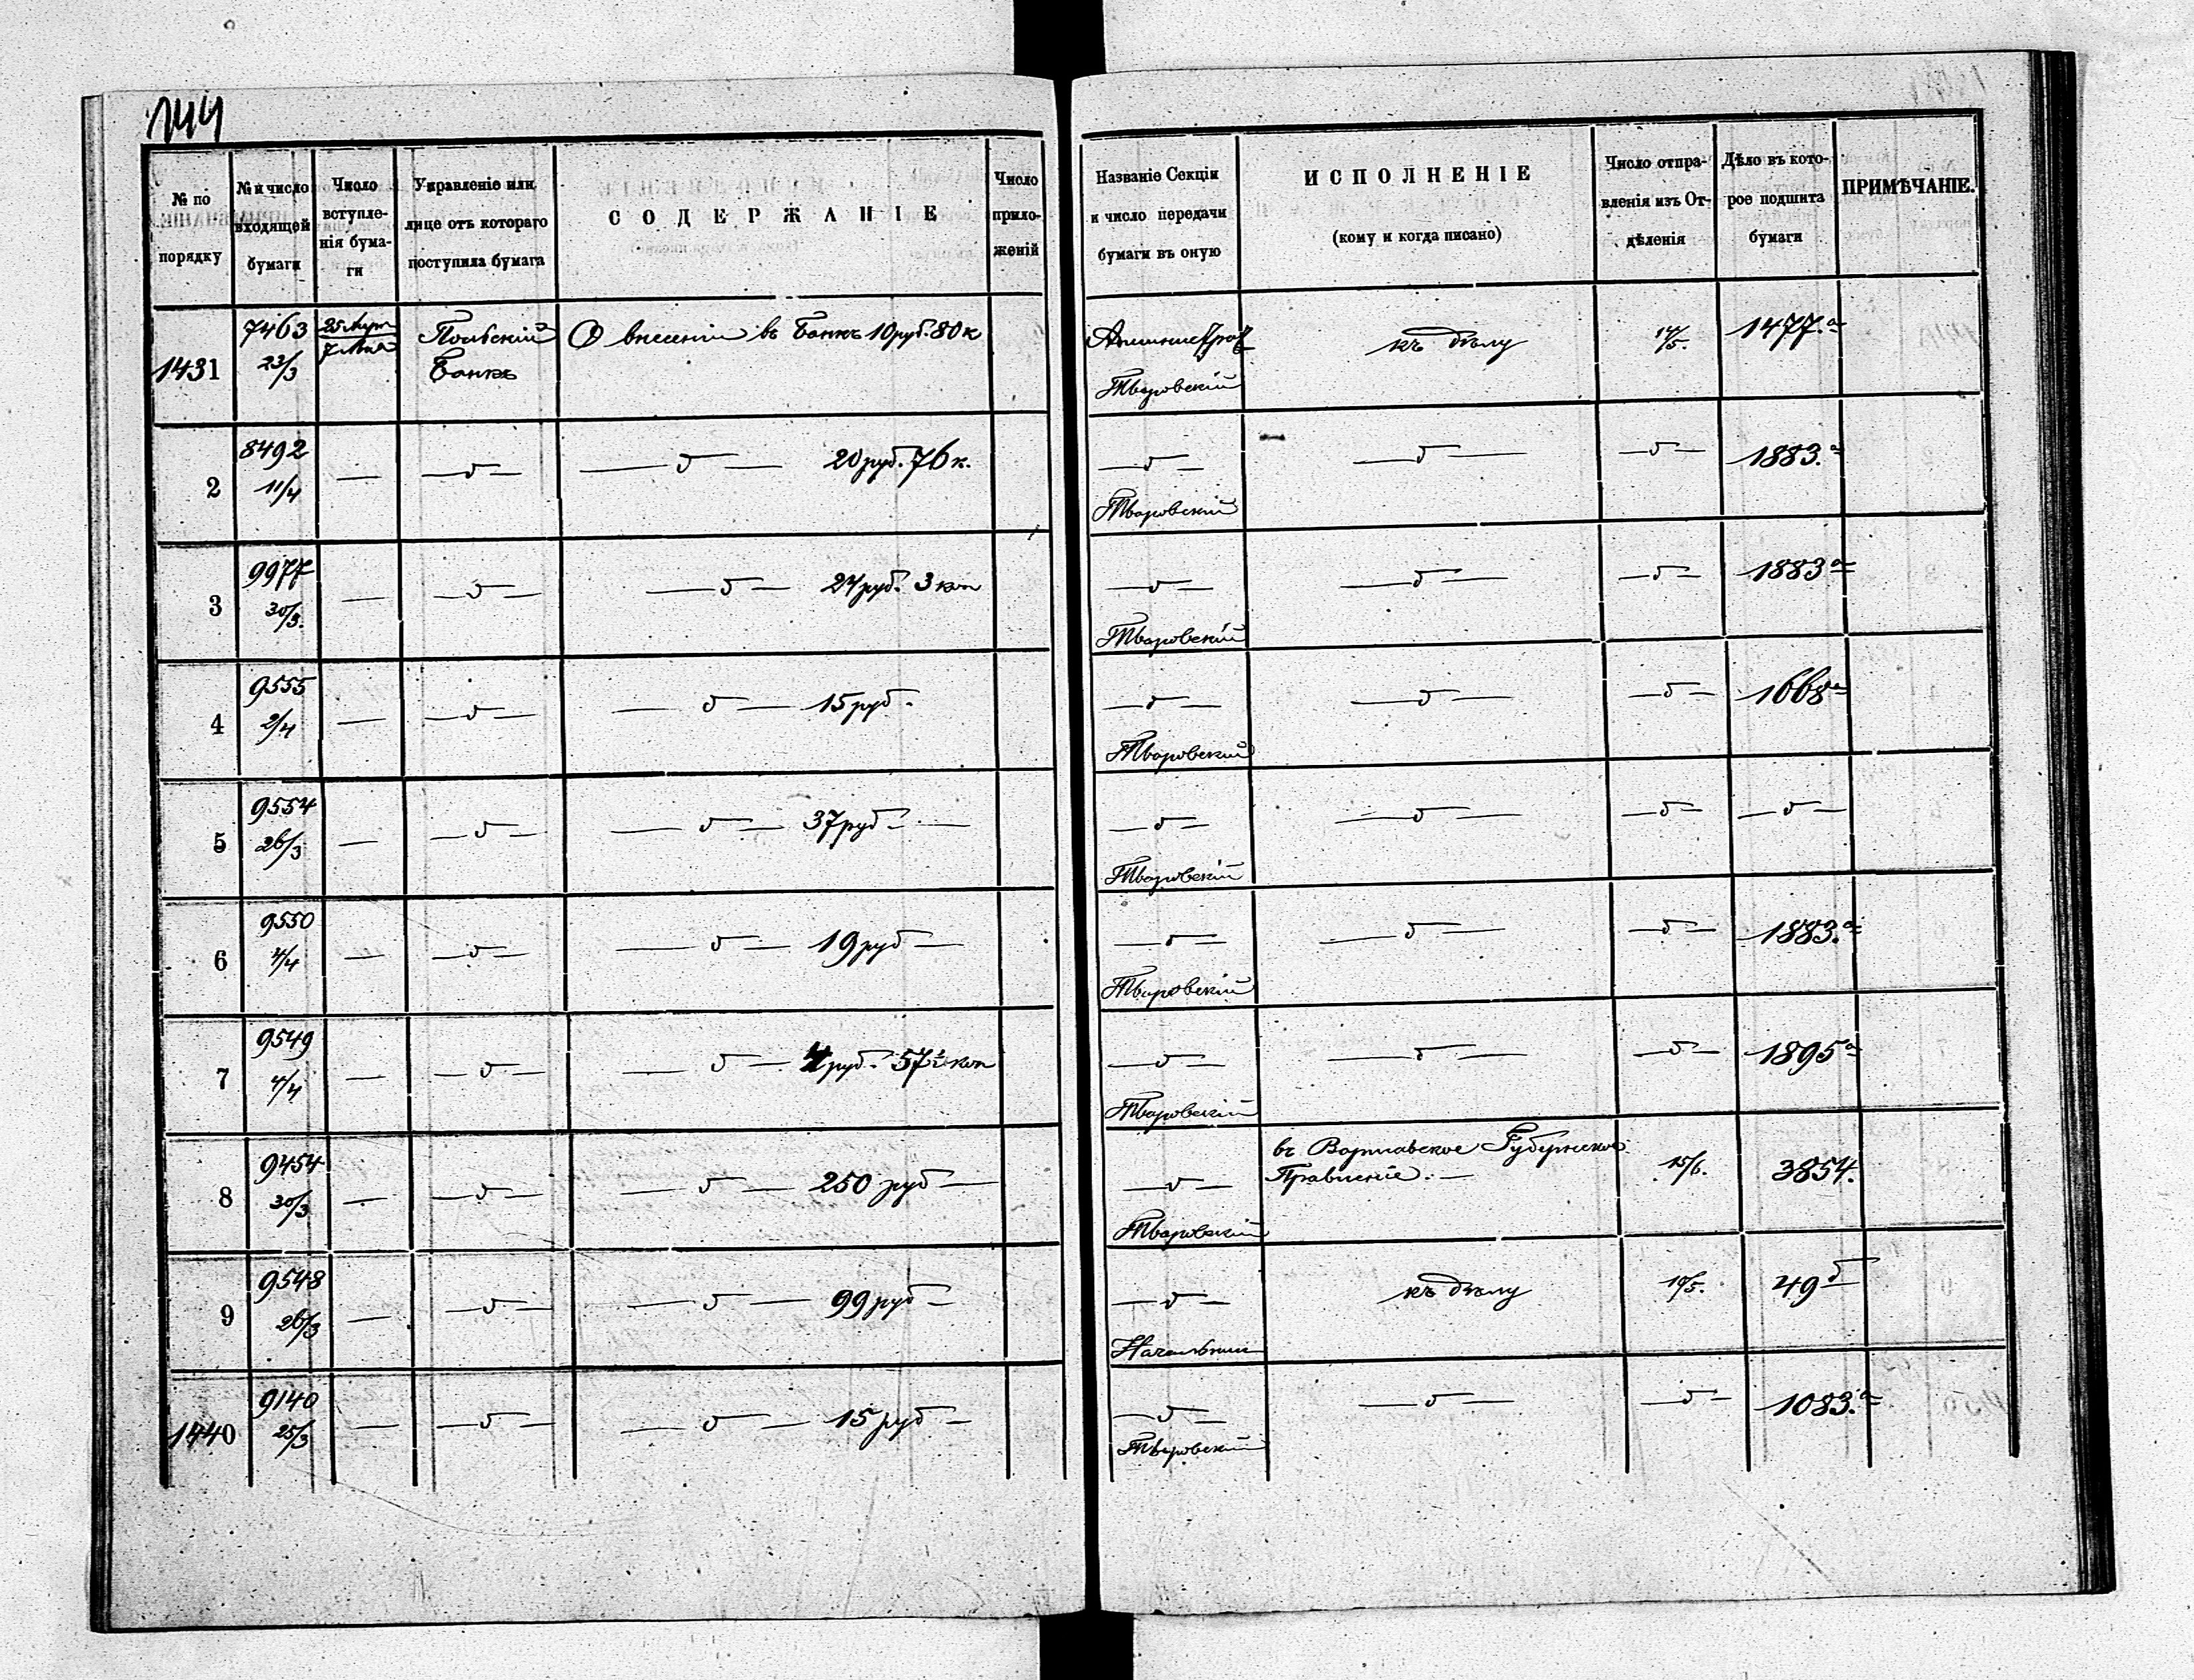 144
№ по порядку
№ и число входящей бумаги
Число вступле-нія бума-ги
Управленіе или лице отъ котораго поступила бумага
СОДЕРЖАНІЕ
Число прило-женій
Названіе Секціи и число передачи бумаги въ оную
ИСПОЛНЕНІЕ
(кому и когда писано)
Число отпра-вленія изъ От-дѣленія
Дѣло въ кото-рое подшита бумаги
ПРИМѢЧАНІЕ.
1431 7463 23/3 Польскій Банкъ О внесеніи въ Банкъ 10 руб. 80 к Тваровскій къ дѣлу 14/5. 1477.а
2 8492 11/4 — — д — — д — 20 руб. 76 к. — д — Тваровскій — д — — д — 1883.а
3 9977 30/3. — — д — — д — 24 руб. 3 коп — д — Тваровскій — д — — д — 1883а
4 9555 2/4 — — д — — д — 15 руб. — д — Тваровскій — д — — д — 1668а
5 9554 26/3 — — д — — д — 37 руб — — д — Тваровскій — д — — д — — д —
6 9550 4/4 — — д — — д — 19 руб — — д — Тваровскій — д — — д — 1883.а
7 9549 4/4 — — д — — д — 4 руб. 57½ коп — д — Тваровскій — д — — д — 1895а
8 9454 30/3 — — д — — д — 250 руб — — д — Тваровскій въ Варшавское Губернское Правленіе. — 15/6. 3854.
9 9548 26/3 — — д — — д — 99 руб — — д — къ дѣлу 19/5. 49 б
1440 9140 25/3 — — д — — д — 15 руб — — д — Тваровскій — д — — д — 1083.а